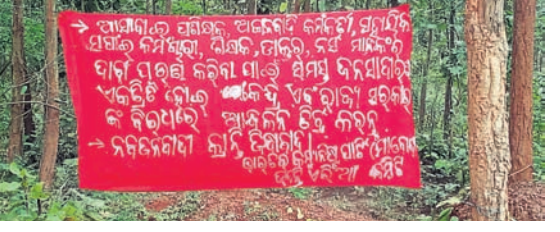 → ଆସାବାଇ ପ୍ରଶିକ୍ଷକ, ଅଙ୍ଗନବାଡି କର୍ମକର୍ତୀ, ସହାୟିକା
ସଫାଇ କର୍ମଚାରୀ, ଶିକ୍ଷକ, ଡାକ୍ତର, ନର୍ସ ମାନଙ୍କର
ଦାବୀ ପୂରଣ କରିବା ପାଇଁ ସମସ୍ତ ଜନସାଧାରଣ
ଏକତ୍ରିତ ହୋଇ କେନ୍ଦ୍ର ଏବଂ ରାଜ୍ୟ ସରକାର
ଙ୍କ ବିରୁଧରେ ଆନ୍ଦୋଳନ ତିବ୍ର କରନ୍ତୁ
→ ନବଜନବାଦୀ କ୍ରାନ୍ତି ଜିନ୍ଦାବାଦ
ପାର୍ଟି (ମାଓବାଦୀ
କମିଟି